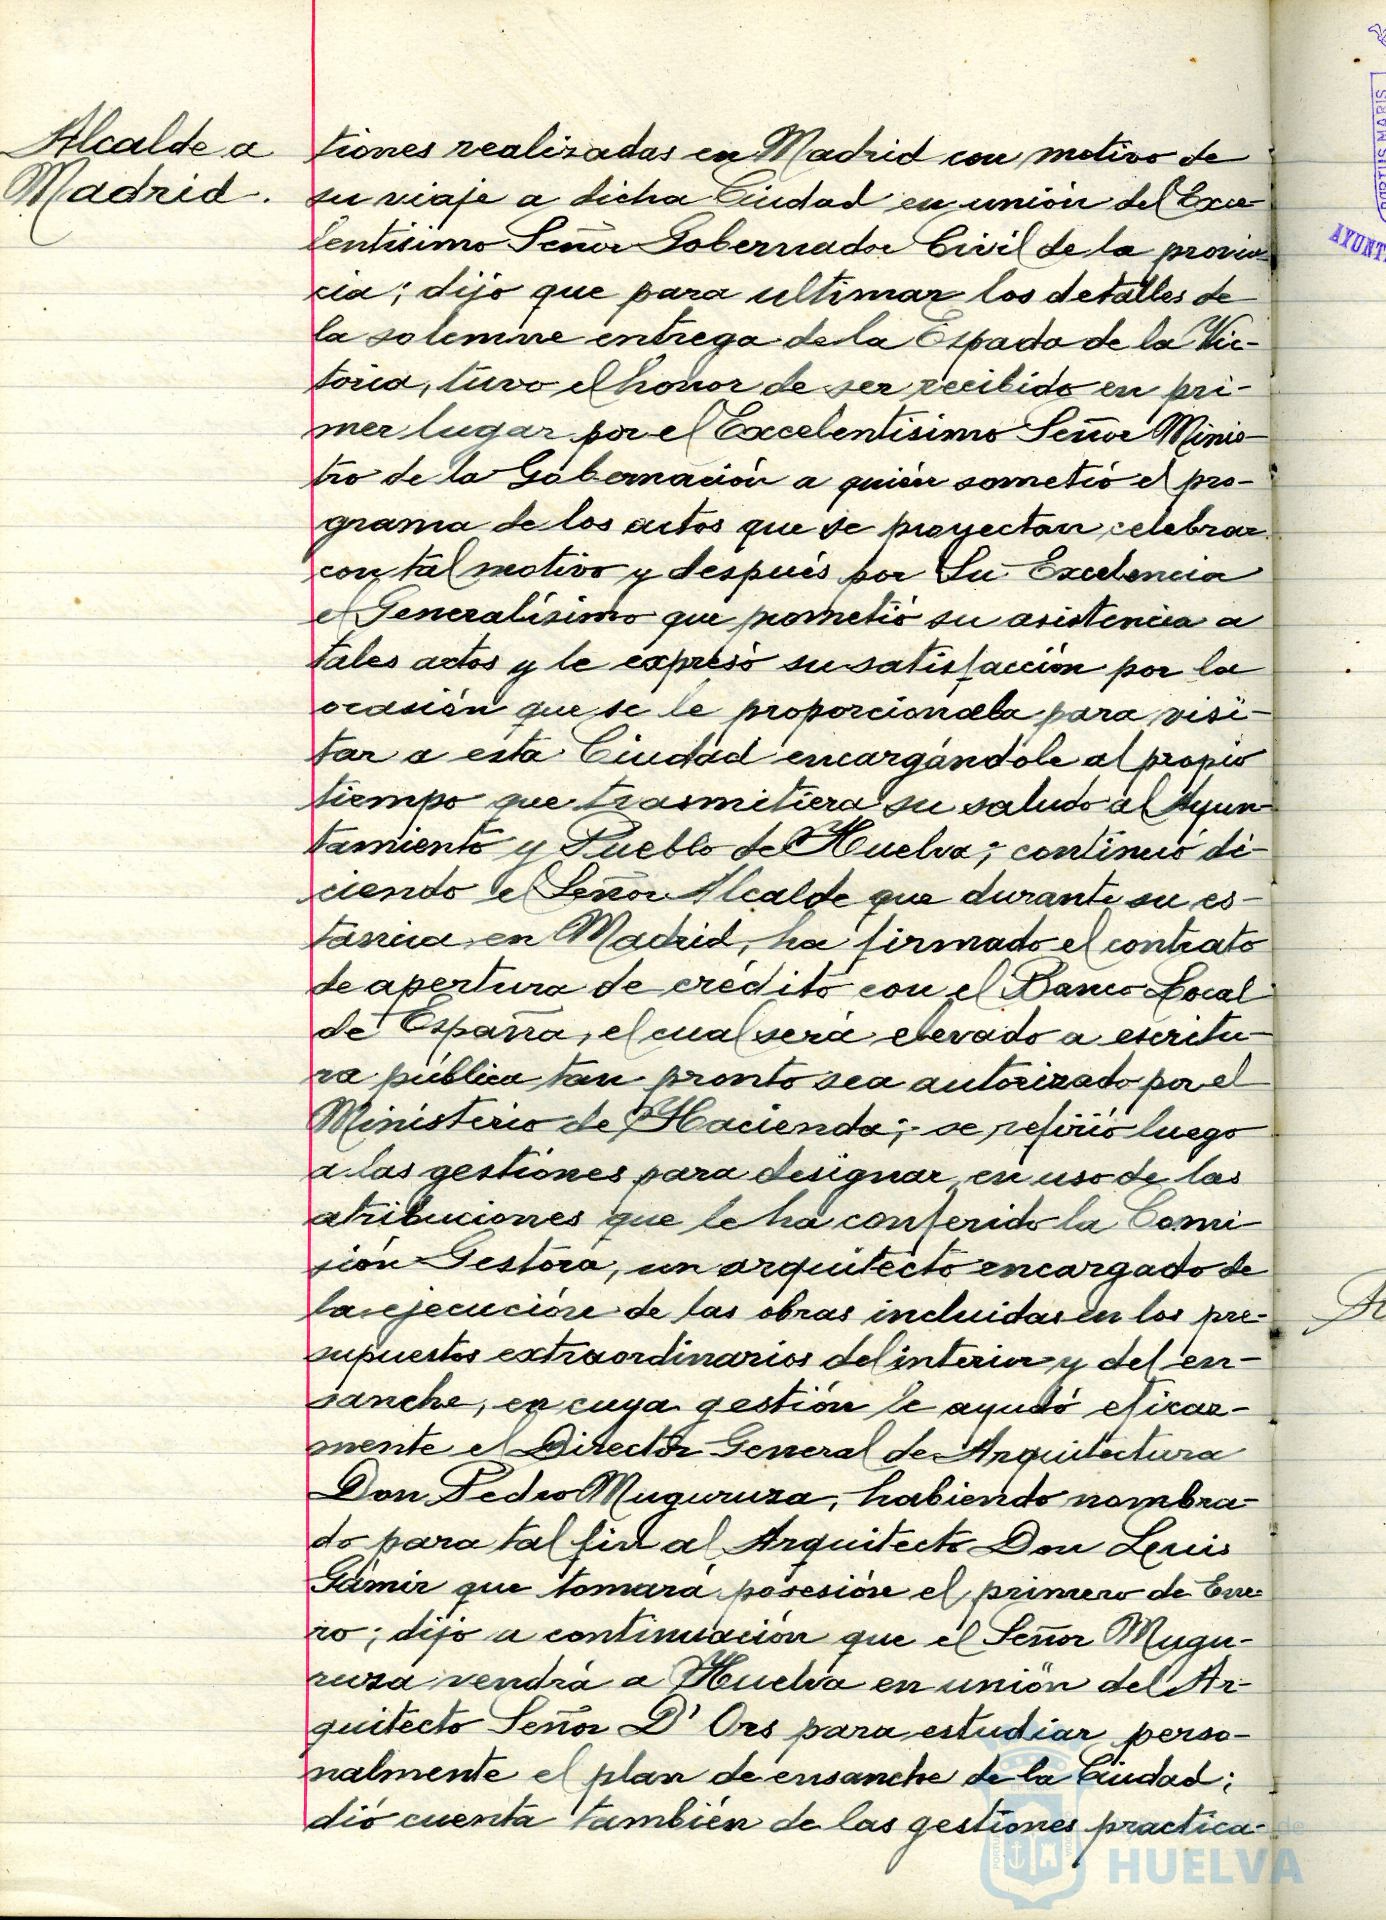 Alcalde a
Madrid.
tiones realizadas en Madrid con motivo de
su viaje a dicha Ciudad en unión del Exce-
lentisimo Señor Gobernador Civil de la provin-
cia; dijo que para ultimar los detalles de
la solemne entrega de la Espada de la Vic-
toria, tuvo el honor de ser recibido en pri-
mer lugar por el Excelentisimo Señor Minis-
tro de la Gobernación a quién sometió el pro-
grama de los actos que se proyectan celebrar
con tal motivo y después por Su Excelencia
el Generalísimo que prometió su asistencia a
tales actos y le expresó su satisfacción por la
ocasión que se le proporcionaba para visi-
tar a esta Ciudad encargándole al propio
tiempo que trasmitiera su saludo al Ayun-
tamiento y Pueblo de Huelva; continuó di-
ciendo el Señor Alcalde que durante su es-
tancia en Madrid, ha firmado el contrato
de apertura de crédito con el Banco Local
de España, el cual será elevado a escritu-
ra pública tan pronto sea autorizado por el
Ministerio de Hacienda; se refirió luego
a las gestiones para designar, en uso de las
atribuciones que le ha conferido la Comi-
sión Gestora, un arquitecto encargado de
la ejecución de las obras incluidas en los pre-
supuestos extraordinarios del interior y del en-
sanche, en cuya gestión le ayudó eficaz-
mente el Director General de Arquitectura
Don Pedro Muguruza, habiendo nombra-
do para tal fin al Arquitecto Don Luis
Gámir que tomará posesión el primero de Ene-
ro; dijo a continuación que el Señor Mugu-
ruza vendrá a Huelva en unión del Ar-
quitecto Señor D' Ors para estudiar perso-
nalmente el plan de ensanche de la Ciudad;
dió cuenta también de las gestiones practica-
PORTUS MARIS
AYUNT
de
HUELVA